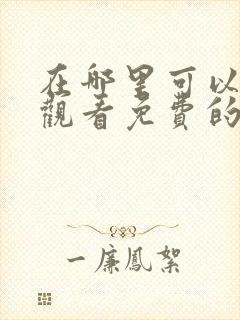 在哪里可以
觀看免費的
一廉鳳絮